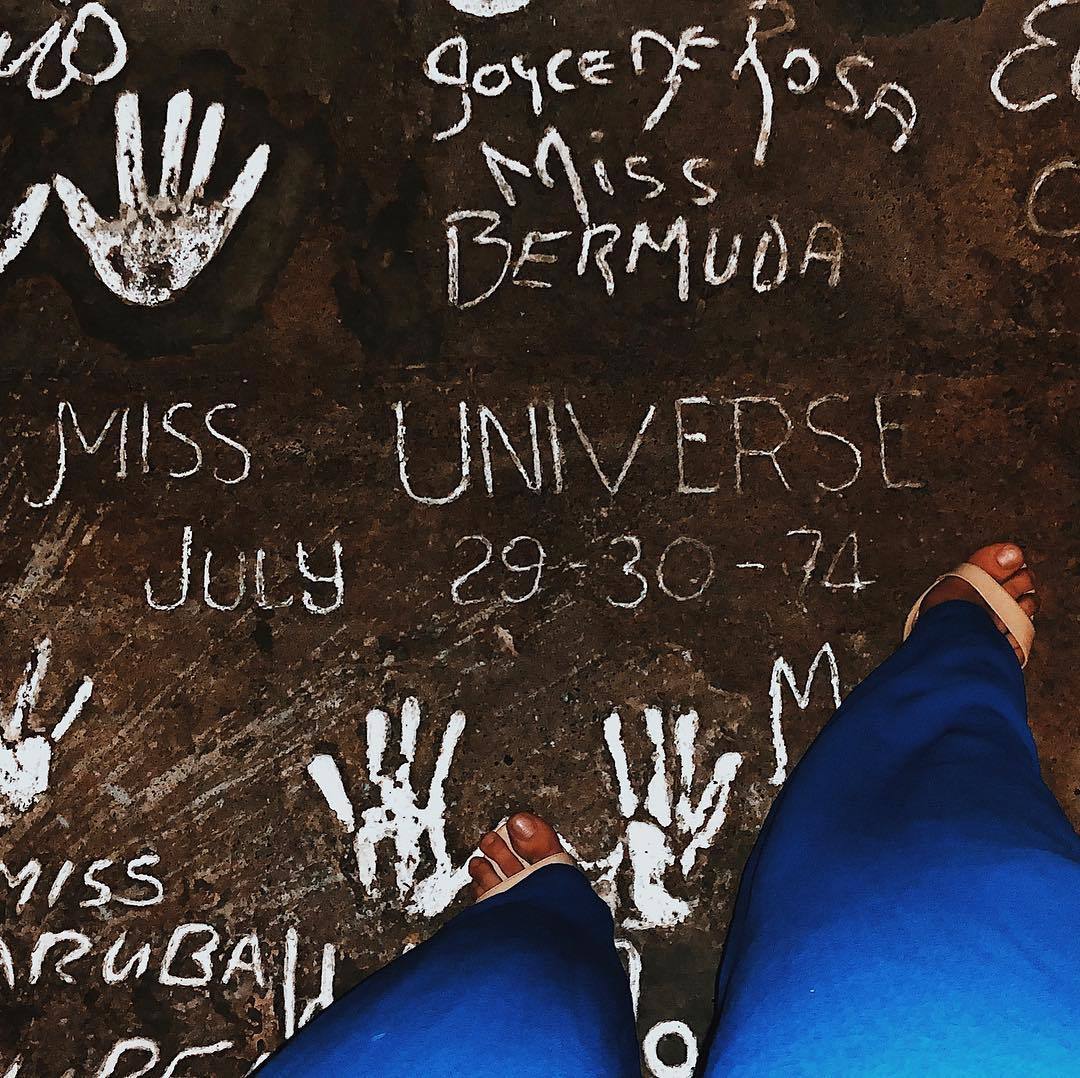 JOYCE DE ROSA
MISS
BERMUDA
MISS UNIVERSE
JULY 29-30-74
M
MISS
ARUBA